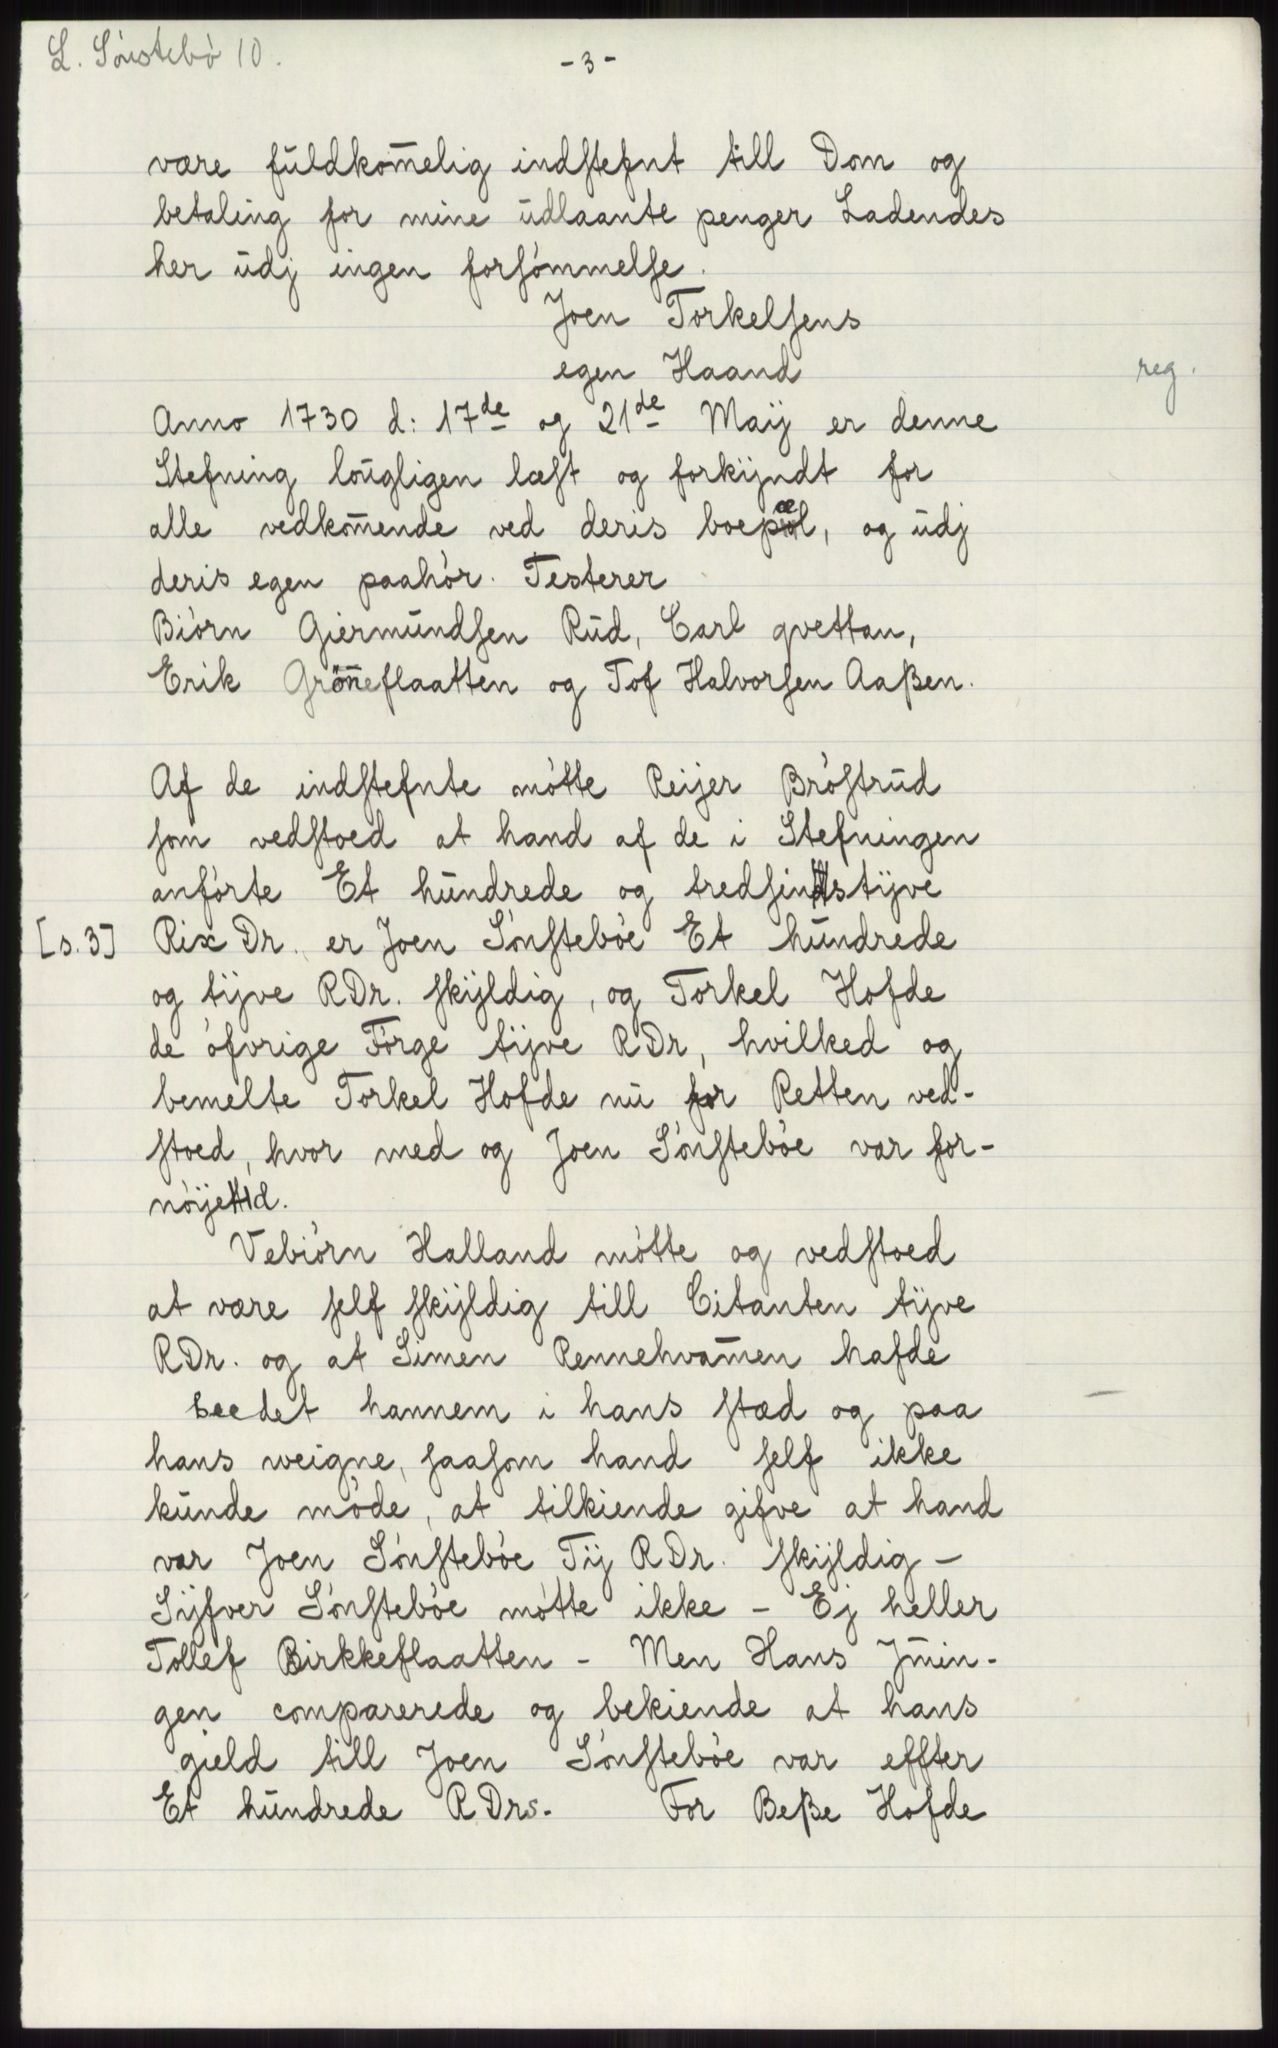 L. Sónstebó 10.
- 3 -
være fuldkom̅elig indstefnt till Dom og
betaling for mine udlaante penger Ladendes
her udj ingen forsómmelse.
Joen Torkelsens
egen Haand
reg.
Anno 1730 d: 17de og 21de Maij er denne
Stefning lougligen læst og forkijndt for
alle vedkom̅ende ved deris boepæl, og udj
deris egen paahór. Testerer
Biórn Giermundsen Rud, Carl qvettan,
Erik Grön̅eflaatten og Tof Halvorsen Aaßen.
Af de indstefnte mótte Reijer Bróstrud
som vedstoed at hand af de i Stefningen
anfórte Et hundrede og tredsindstijve
[s. 3] Rix Dr. er Joen Sónstebóe Et hundrede
og tijve RDr. skijldig, og Torkel Hofde
de ófvrige Fórge tijve RDr, hvilked og
bemelte Torkel Hofde nu for Retten ved-
stoed, hvor med og Joen Sónstebóe var for-
nóije̶t̶d.
Vebiórn Halland mótte og vedstoed
at være self skijldig till Citanten tijve
RDr. og at Simen Rennehvam̅en hafde
beedet hannem i hans stæd og paa
hans weigne, saasom hand self ikke
kunde móde, at tilkiende gifve at hand
var Joen Sónstebóe Tij RDr. skijldig –
Sijfver Sónstebóe mótte ikke – Ej heller
Tollef Birkkeflaatten – Men Hans Jm̅in-
gen comparerede og bekiende at hans
gield till Joen Sónstebóe var effter
Et hundrede RDrs. For Beße Hofde